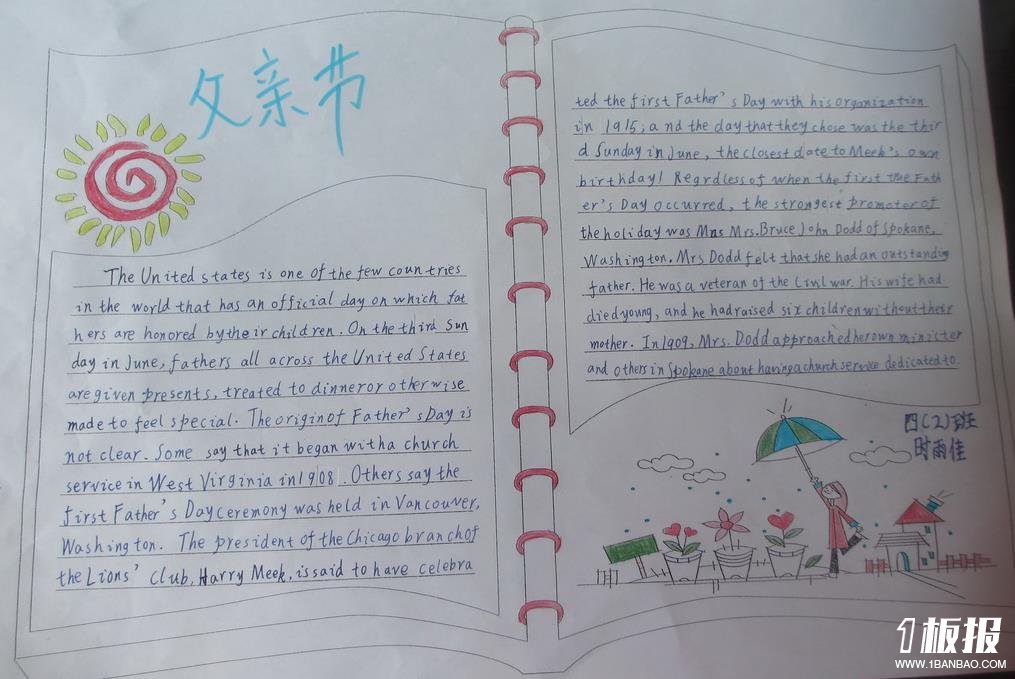 父亲节
The United states is one of the few countries
in the world that has an official day on which fat
hers are honored by their children. On the third Sun
day in June, fathers all across the United States
are given presents, treated to dinner or otherwise
made to feel special. The origin of Father's Day is
not clear. Some say that it began with a church
service in West Virginia in 1908. Others say the
first Father's Day ceremony was held in Vancouver,
Washington. The president of the Chicago branch of
the Lions' Club, Harry Meek, is said to have celebra
ted the first Father's Day with his organization
in 1915; and the day that they chose was the thir
d Sunday in June, the closest date to Meek's own
birthday! Regrdless of when the first true Fath
er's Day occurred, the strongest promoter of
the holiday was Mns Mrs. Bruce John Dodd of Spokane,
Washington. Mrs Dodd felt that she had an outstanding
father. He was a veteran of the Civil war. His wife had
died young, and he had raised six children without their
mother. In 1909, Mrs. Dodd approached her own minister
and others in Spokane about having a church service dedicated to
四(2)班
时雨佳
1板报
WWW.1BANBAO.COM